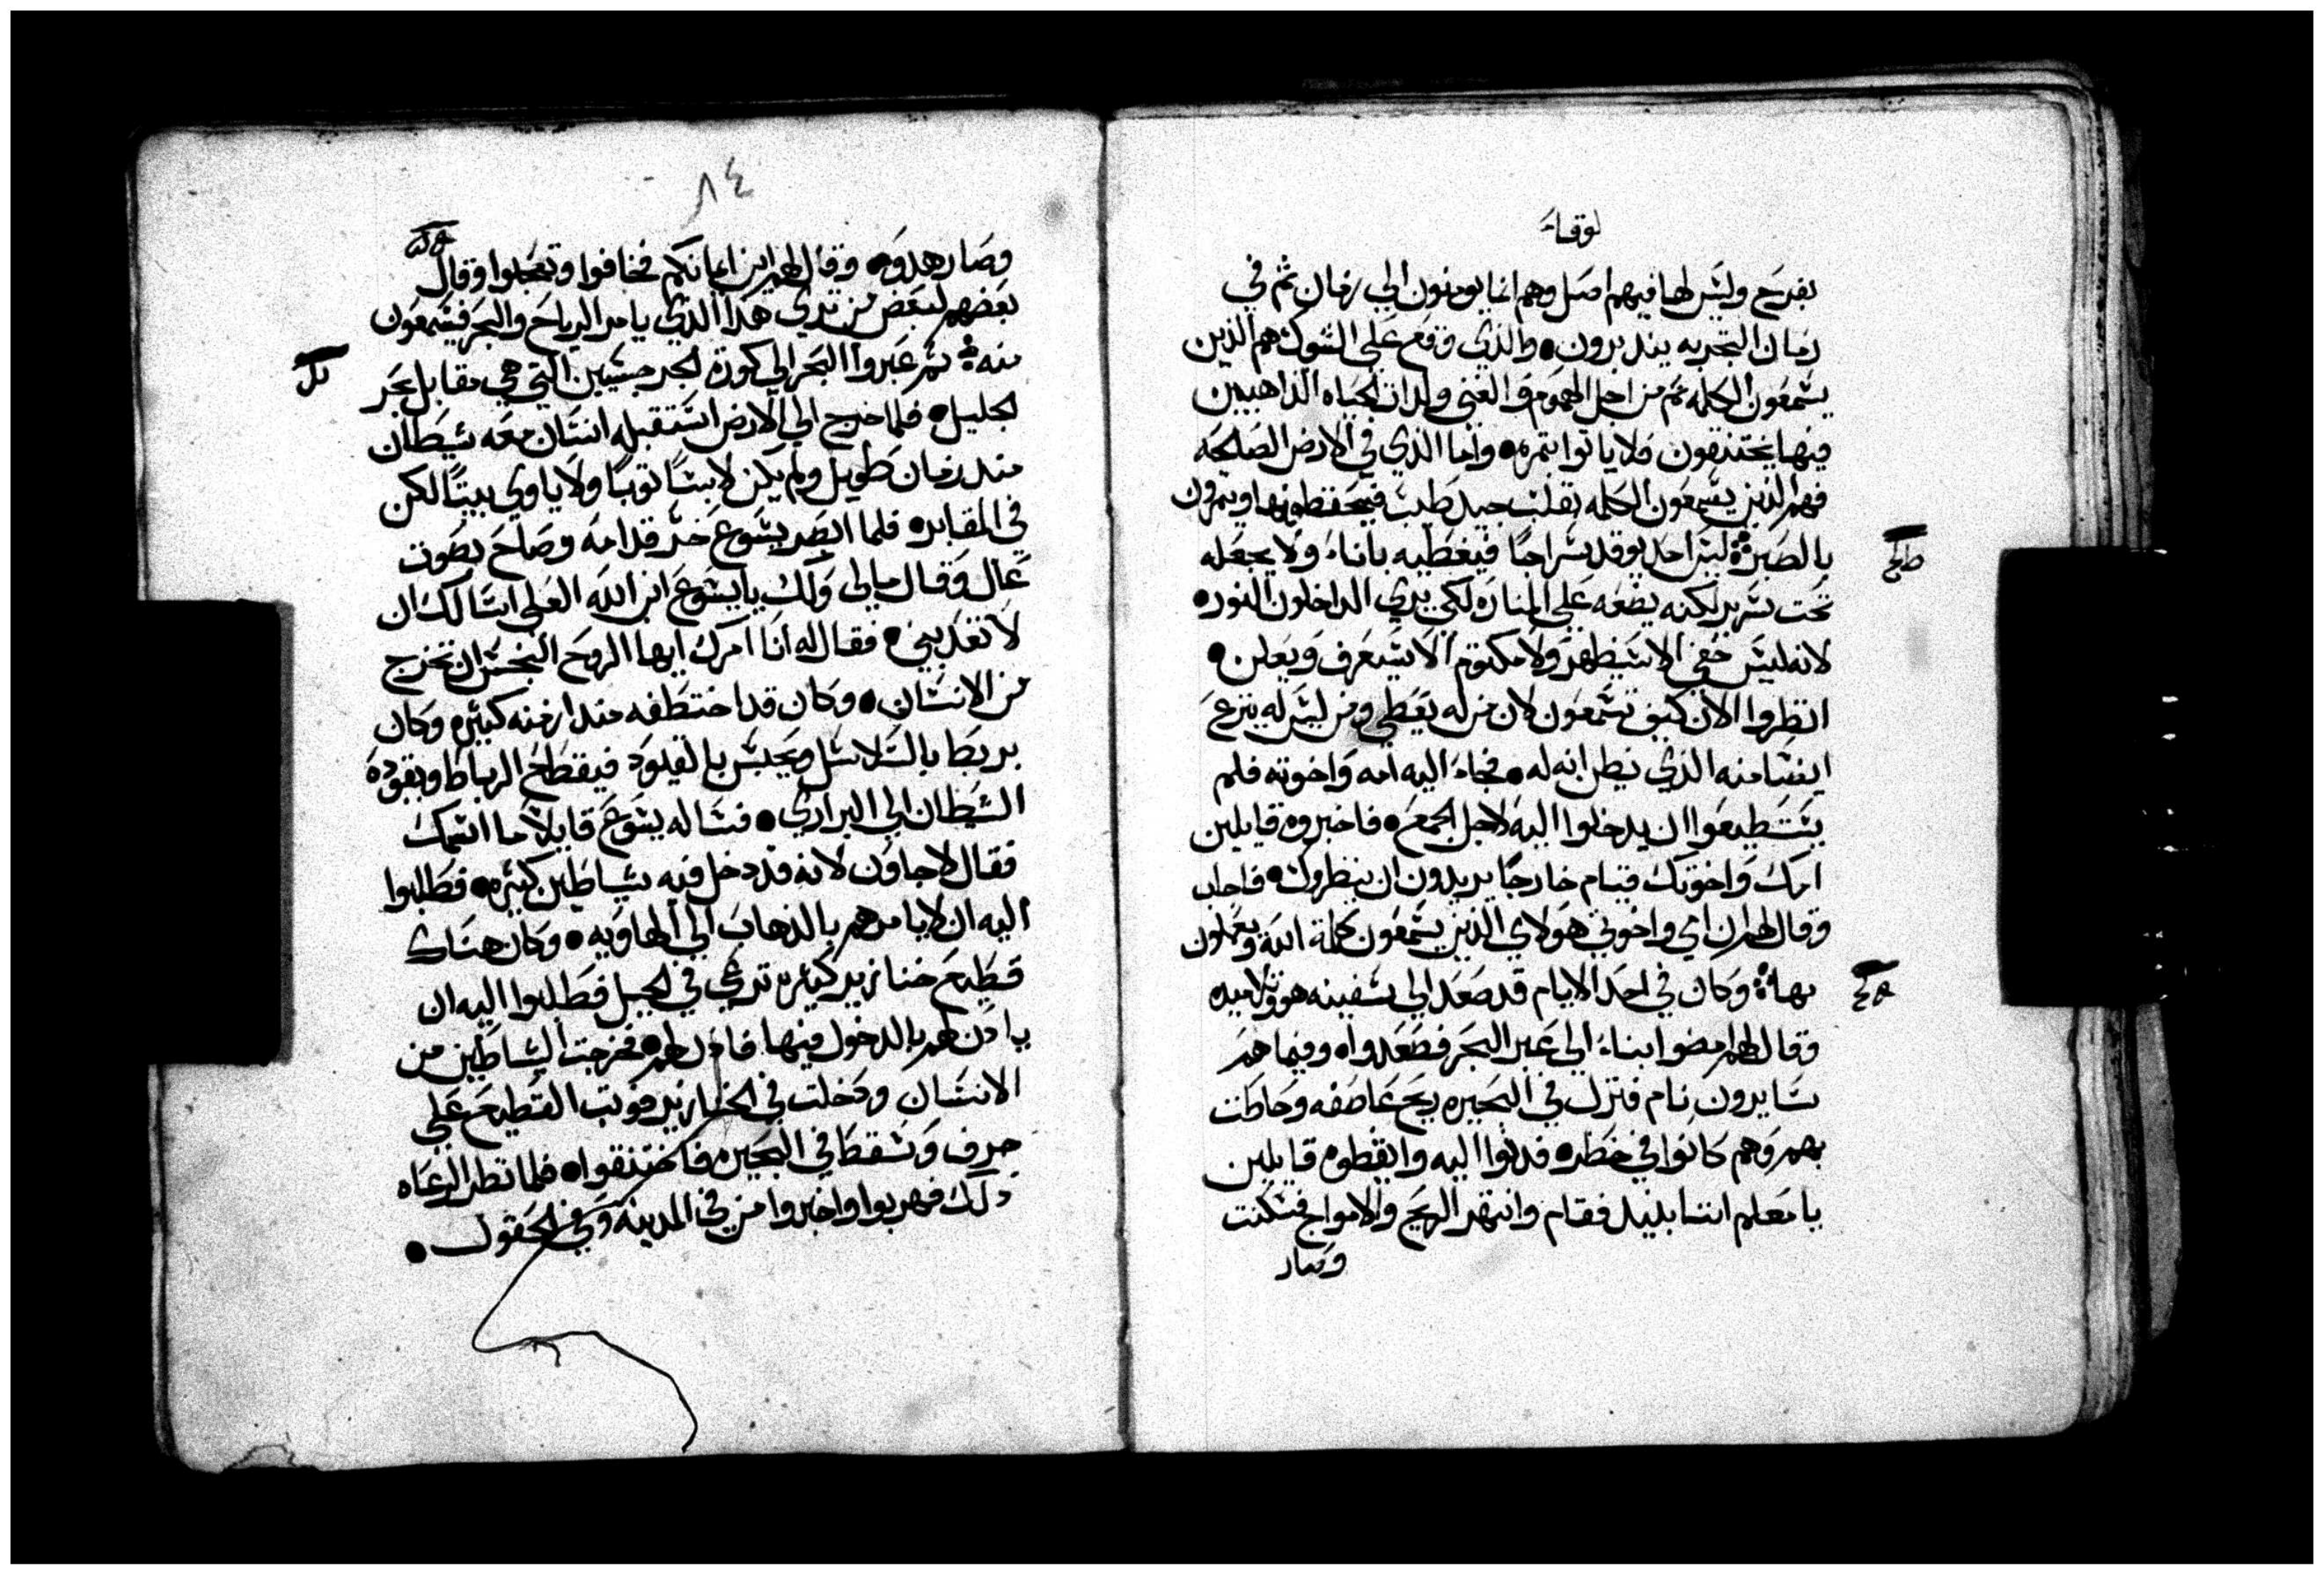 لوقاء
بفرح وليس لها فيهم اصل وهم انما يومنون الي زمان ثم في
زمان التجربه يندبرون • والذي وقع علي الشوك هم الذين
يسمعون الكلمه ثم من اجل الهموم والغني ولدات الحياه الداهبين
فيها يختنقون فلا ياتوا بثمره • واما الذي في الارض الصالحه
فهم الذين يسمعون الكلمه بقلب جيد طيب فيحفظونها ويثمرون
بالصبر ليس احد يوقد سراجا فيغطيه باناء ولا يجعله
تحت سرير لكنه يضعه علي المناره لكي يري الداخلون النور •
لانه ليس خفي الا سيظهر ولا مكتوم الا سيعرف ويعلن •
انظروا الان كيف تسمعون لان من له يعطي ومن ليس له ينزع
ايضا منه الذي يظن انه له • فجاء اليه امه واخوته فلم
يستطيعوا ان يدخلوا اليه لاجل الجمع • فاخبروه قايلين
امك واخوتك قيام خارجا يريدون ان ينظروك • فاجاب
وقال لهم ان امي واخوتي هولاي الذين يسمعون كلمة الله ويعملون
بها وكان في احد الايام قد صعد الي سفينه هو وتلاميده
وقال لهم امضوا بناء الي عبر البحر فصعدوا • وفيما هم
سايرون نام فنزل في البحيره ريح عاصفه وحاطت
بهم وهم كانوا في خطر • فدنوا اليه وايقظوه قايلين
يا معلم انتا بنيد فقام وانتهر الريح والامواج فسكنت
وصار
٨٤
وصار هدوه • وقال لهم اين ايمانكم فخافوا وتعجبوا وقال
بعضهم لبعض من تري هذا الذي يامر الرياح والبحر فيسمعون
منه ثم عبروا البحر الي كورة الجرجسيين التي هي مقابل عبر
الجليل • فلما خرج الي الارض استقبله انسان معه شيطان
مند زمان طويل ولم يكن لابسا ثوبا ولا ياوي بيتا لكن
في المقابر • فلما ابصر يسوع خر قدامه وصاح بصوت
عال وقال مالي ولك يا يسوع ابن الله العلي اسالك ان
لا تعدبني • فقال له انا امرك ايها الروح النجس ان تخرج
من الانسان • وكان قد اختطفه مند ازمنه كثيره وكان
يربط بالسلاسل ويحبس بالقيود فيقطع الرباط ويقوده
الشيطان الي البراري • فساله يسوع قايلا ما اسمك
فقال لاجاون لانه قد دخل فيه شياطين كثيره • فطلبوا
اليه ان لا يامرهم بالدهاب الي الهاويه • وكان هناك
قطيع خنازير كثيره ترعي في الجبل فطلبوا اليه ان
يادن لهم بالدخول فيها فادن لهم • فخرجت الشياطين من
الانسان ودخلت في الخنازير فوتب القطيع علي
جرف وسقط في البحيره فاختنقوا • فلما نظر الرعاه
دلك فهربوا واخبروا من في المدينه وفي الحقول •